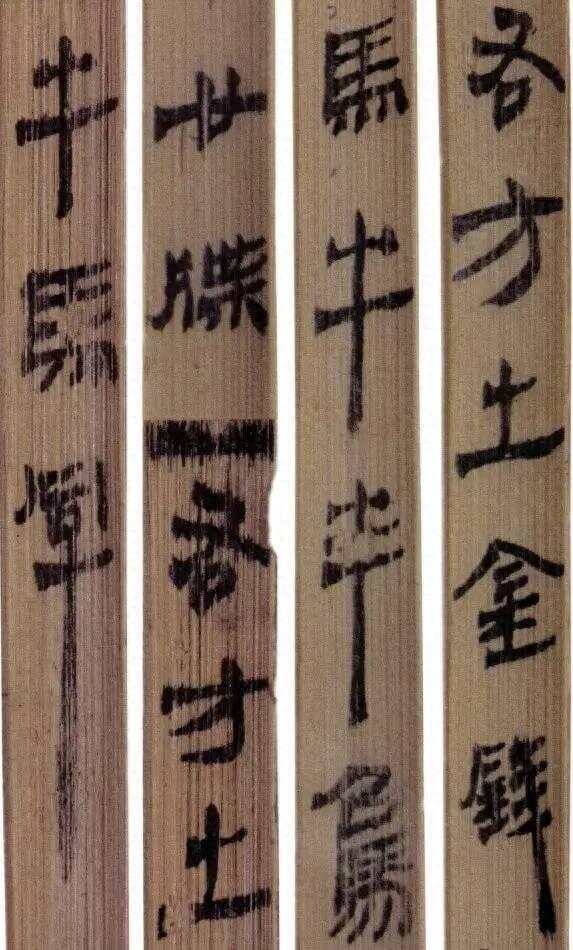 右方土金錢
馬牛羊鳥
廿牒右方土
牛馬